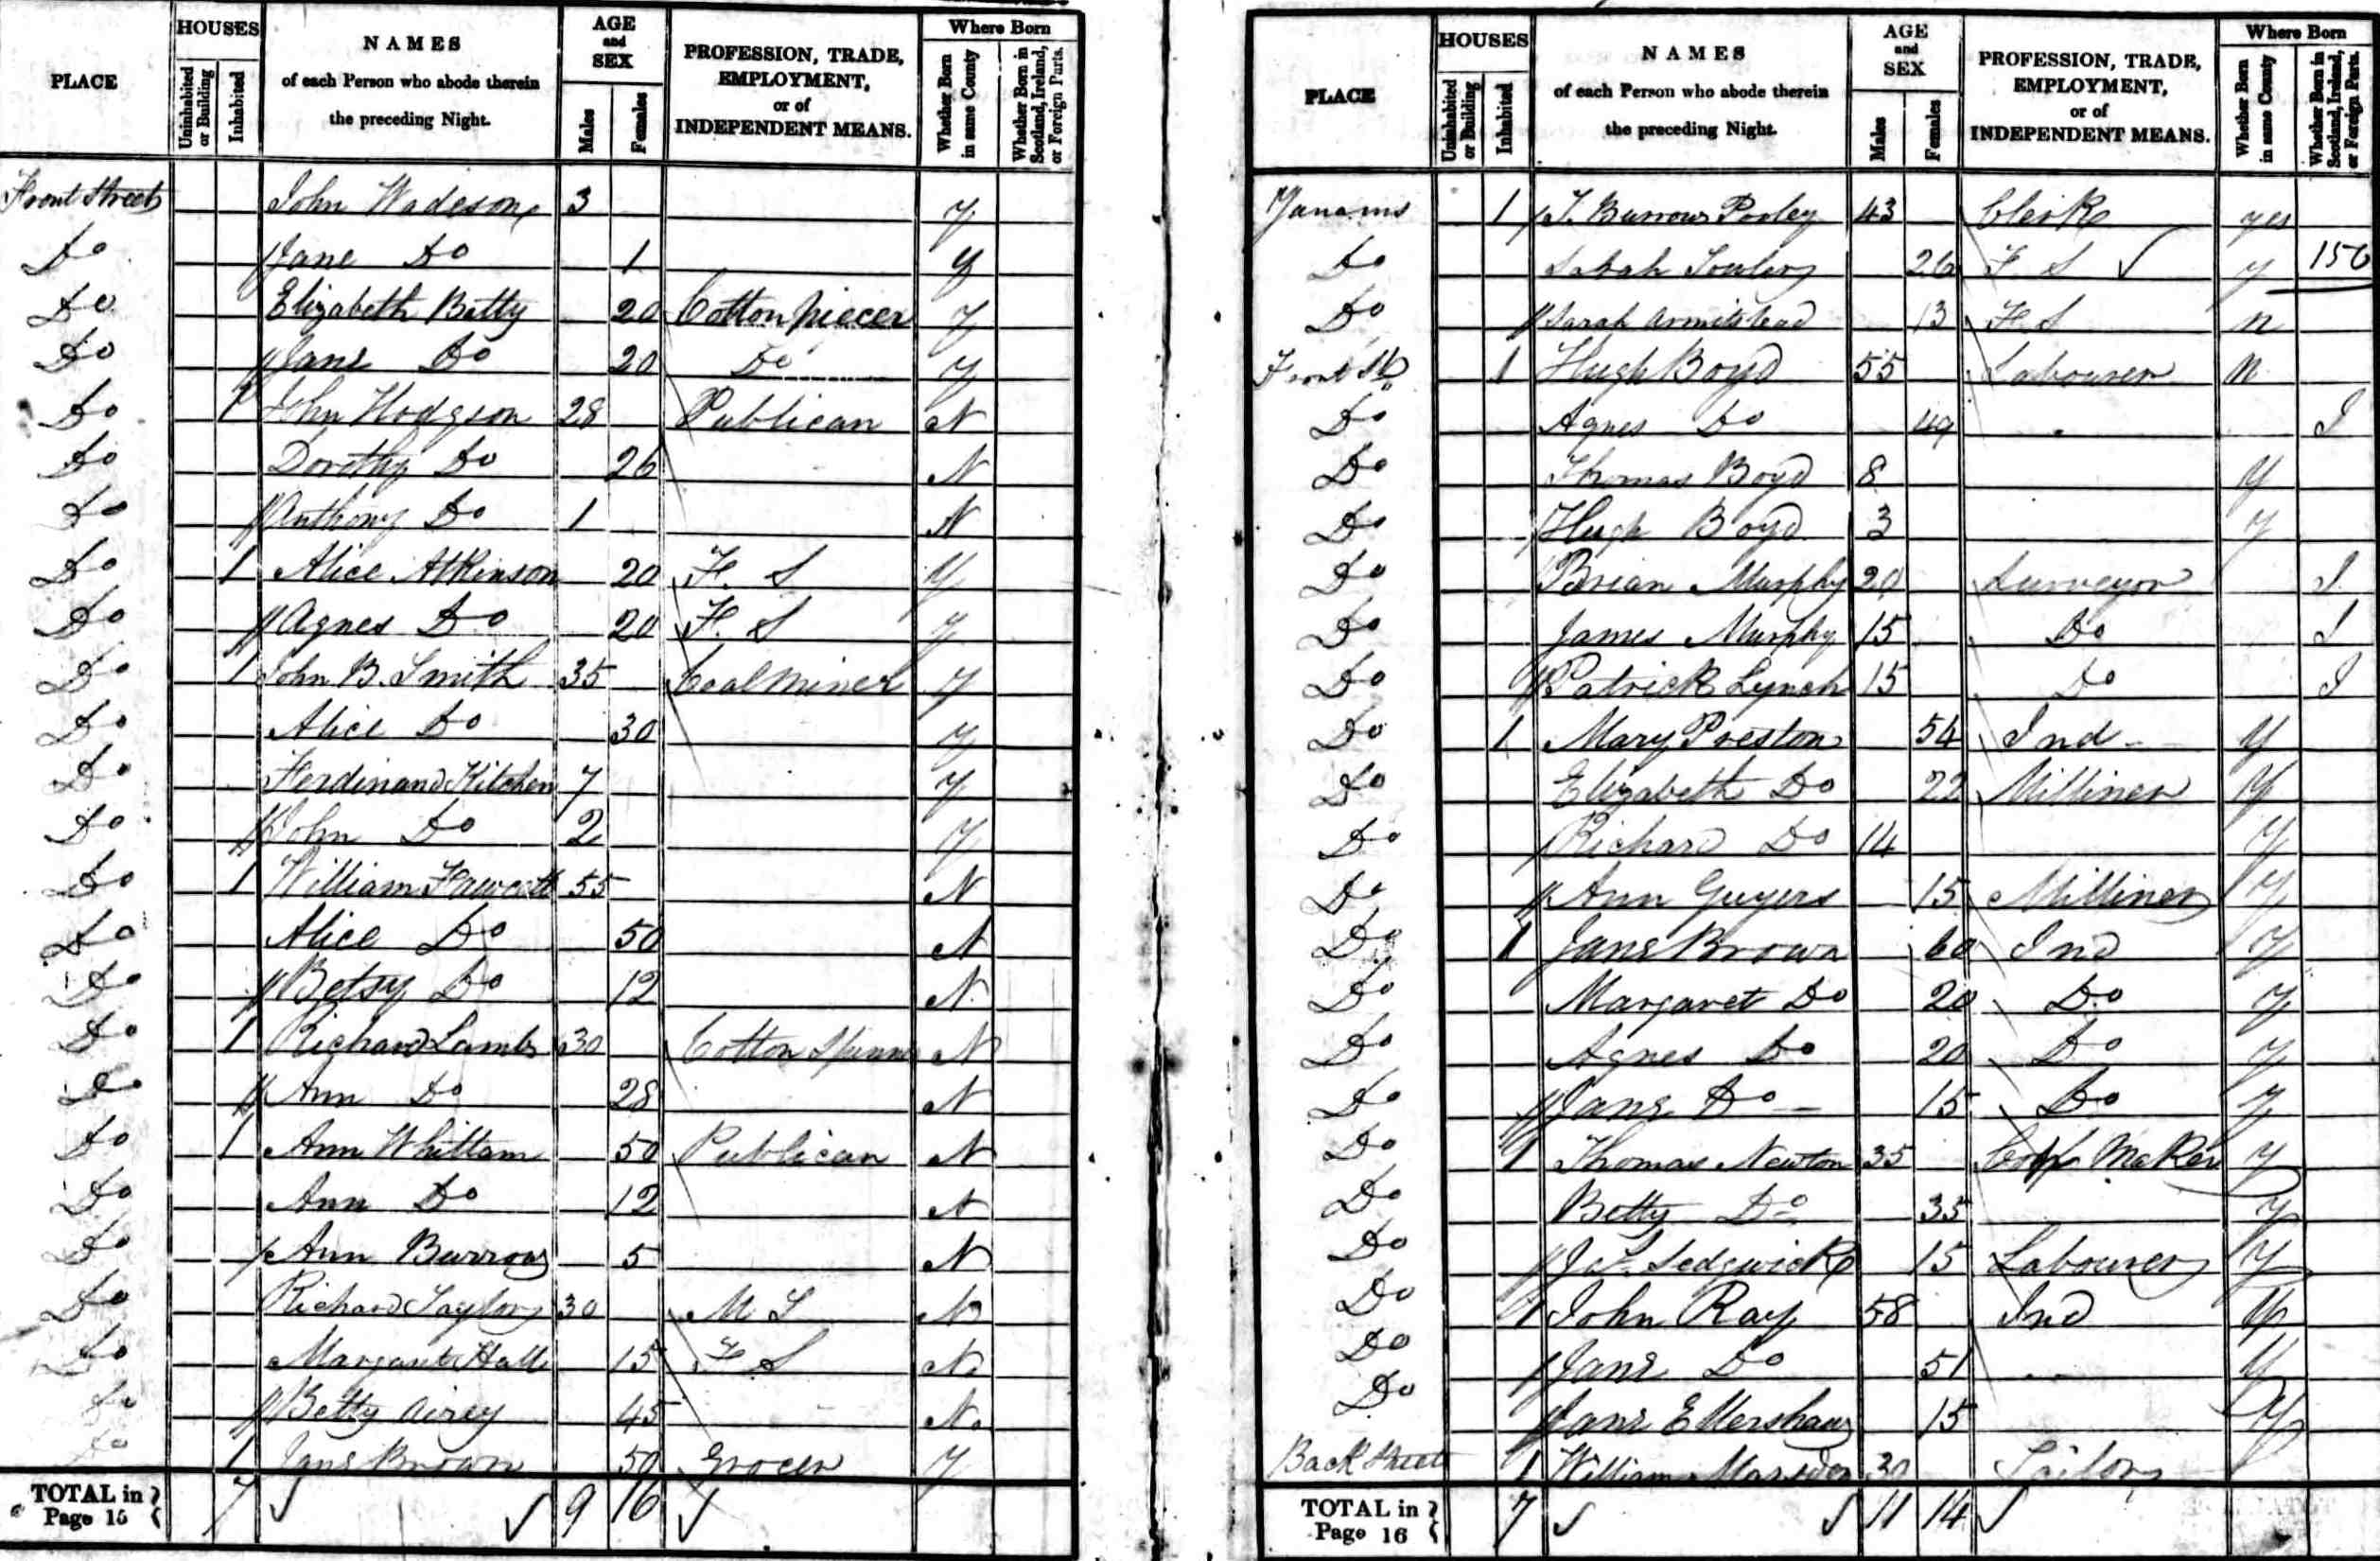 PLACE HOUSES Uninhabited or Building Inhabited NAMES of each Person who abode therein the preceding Night. AGE and SEX Males Females PROFESSION, TRADE, EMPLOYMENT, or of INDEPENDENT MEANS. Where Born Whether Born in same County Whether Born in Scotland, Ireland, or Foreign Parts.
Front Street John Wadeson 3 y
Do Jane Do 1 y
Do Elizabeth Batty 20 Cotton piecer y
Do Jane Do 20 Do y
Do 1 John Hodgson 28 Publican N
Do Dorothy Do 26 N
Do Anthony Do 1 N
Do 1 Alice Atkinson 20 F. S y
Do Agnes Do 20 F. S y
Do 1 John B. Smith 35 Coal miner y
Do Alice Do 30 y
Do Ferdinand Kitchen 7 y
Do John Do 2 y
Do 1 William Fawcett 55 N
Do Alice Do 50 N
Do Betsy Do 12 N
Do 1 Richard Lamb 30 Cotton Spinner N
Do Ann Do 28 N
Do 1 Ann Whittam 50 Publican N
Do Ann Do 12 N
Do Ann Burrows 5 N
Do Richard Taylor 30 M S N
Do Margaret Hall 15 F S N.
Do Betty Airey 45 N.
Do 1 Jane Brown 50 Grocer y
TOTAL in Page 15 7 9 16
PLACE HOUSES Uninhabited or Building Inhabited NAMES of each Person who abode therein the preceding Night. AGE and SEX Males Females PROFESSION, TRADE, EMPLOYMENT, or of INDEPENDENT MEANS. Where Born Whether Born in same County Whether Born in Scotland, Ireland, or Foreign Parts.
1 T. Burrows Pooley 43 Clerk yes
Do Sarah Towler 26 F. S y 156
Do Sarah Armitstead 13 F. S n
Front St 1 Hugh Boyd 55 Labourer n
Do Agnes Do 49 I
Do Thomas Boyd 8 y
Do Hugh Boyd 3 y
Do Brian Murphy 20 Surveyor I
Do James Murphy 15 Do I
Do Patrick Lynch 15 Do I
Do 1 Mary Preston 54 Ind y
Do Elizabeth Do 22 Milliner y
Do Richard Do 14 y
Do Ann Guyers 15 Milliner y
Do 1 Jane Brown 60 Ind y
Do Margaret Do 20 Do y
Do Agnes Do 20 Do y
Do Jane Do 15 Do y
Do 1 Thomas Newton 35 Maker y
Do Betty Do 35 y
Do Sedgwick 15 Labourer y
Do 1 John Ray 58 Ind y
Do Jane Do 51 y
Do Jane Ellershaw 15 y
Back Street 1 William Marsden 30 Tailor
TOTAL in Page 16 7 11 14